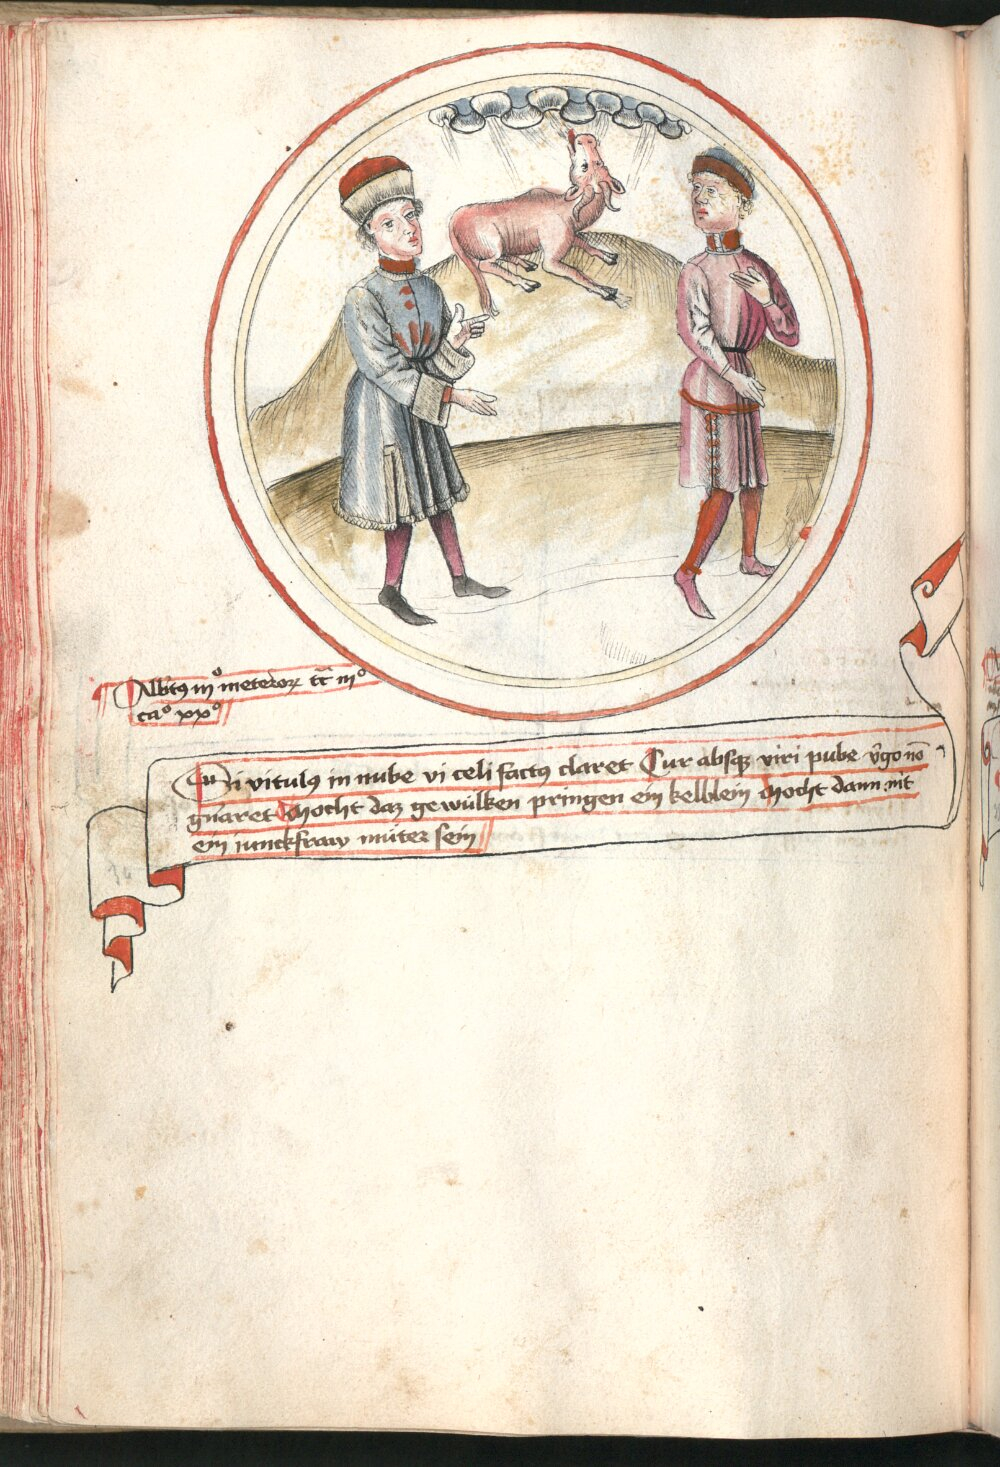 Albt9 iij° metheororꝝ tc̄ iij°
ca° xx°
vitulꝯ in nube vi celi factꝯ claret Cur absqꝫ viri pube v̄go nō
gn̄aret Mocht daz gewülken pringen ein kelblein Mocht dann nit
ein iunckfraw muter sein